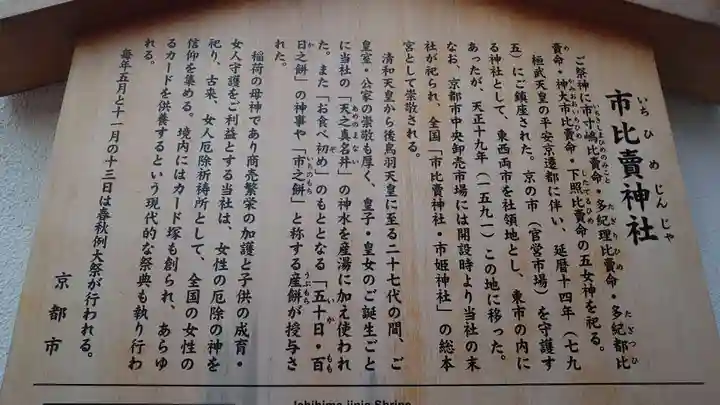 市比賣神社
いちひめじんじゃ
ご祭神に市寸嶋比賣命・多紀理比賣命・多紀都比
賣命・神大市比賣命・下照比賣命の五女神を祀る。
桓武天皇の平安京遷都に伴い、延暦十四年（七九
五）にご鎮座された。京の市（官営市場）を守護す
る神社として、東西両市を社領地とし、東市の内に
あったが、天正十九年（一五九一）この地に移った。
なお、京都市中央卸売市場には開設時より当社の末
社が祀られ、全国「市比賣神社・市姫神社」の総本
宮として崇敬される。
清和天皇から後鳥羽天皇に至る二十七代の間、ご
皇室・公家の崇敬も厚く、皇子・皇女のご誕生ごと
に当社の「天之真名井」の神水を産湯に加え使われ
た。また「お食べ初め」のもととなる「五十日・百
日之餅」の神事や「市之餅」と称する産餅が授与さ
れた。
稲荷の母神であり商売繁栄の加護と子供の成育・
女人守護をご利益とする当社は、女性の厄除の神を
祀り、古来、女人厄除祈祷所として、全国の女性の
信仰を集める。境内にはカード塚も創られ、あらゆ
るカードを供養するという現代的な祭典も執り行わ
れる。
毎年五月と十一月の十三日は春秋例大祭が行われる。
京都市
Ichihime-jinja Shrine